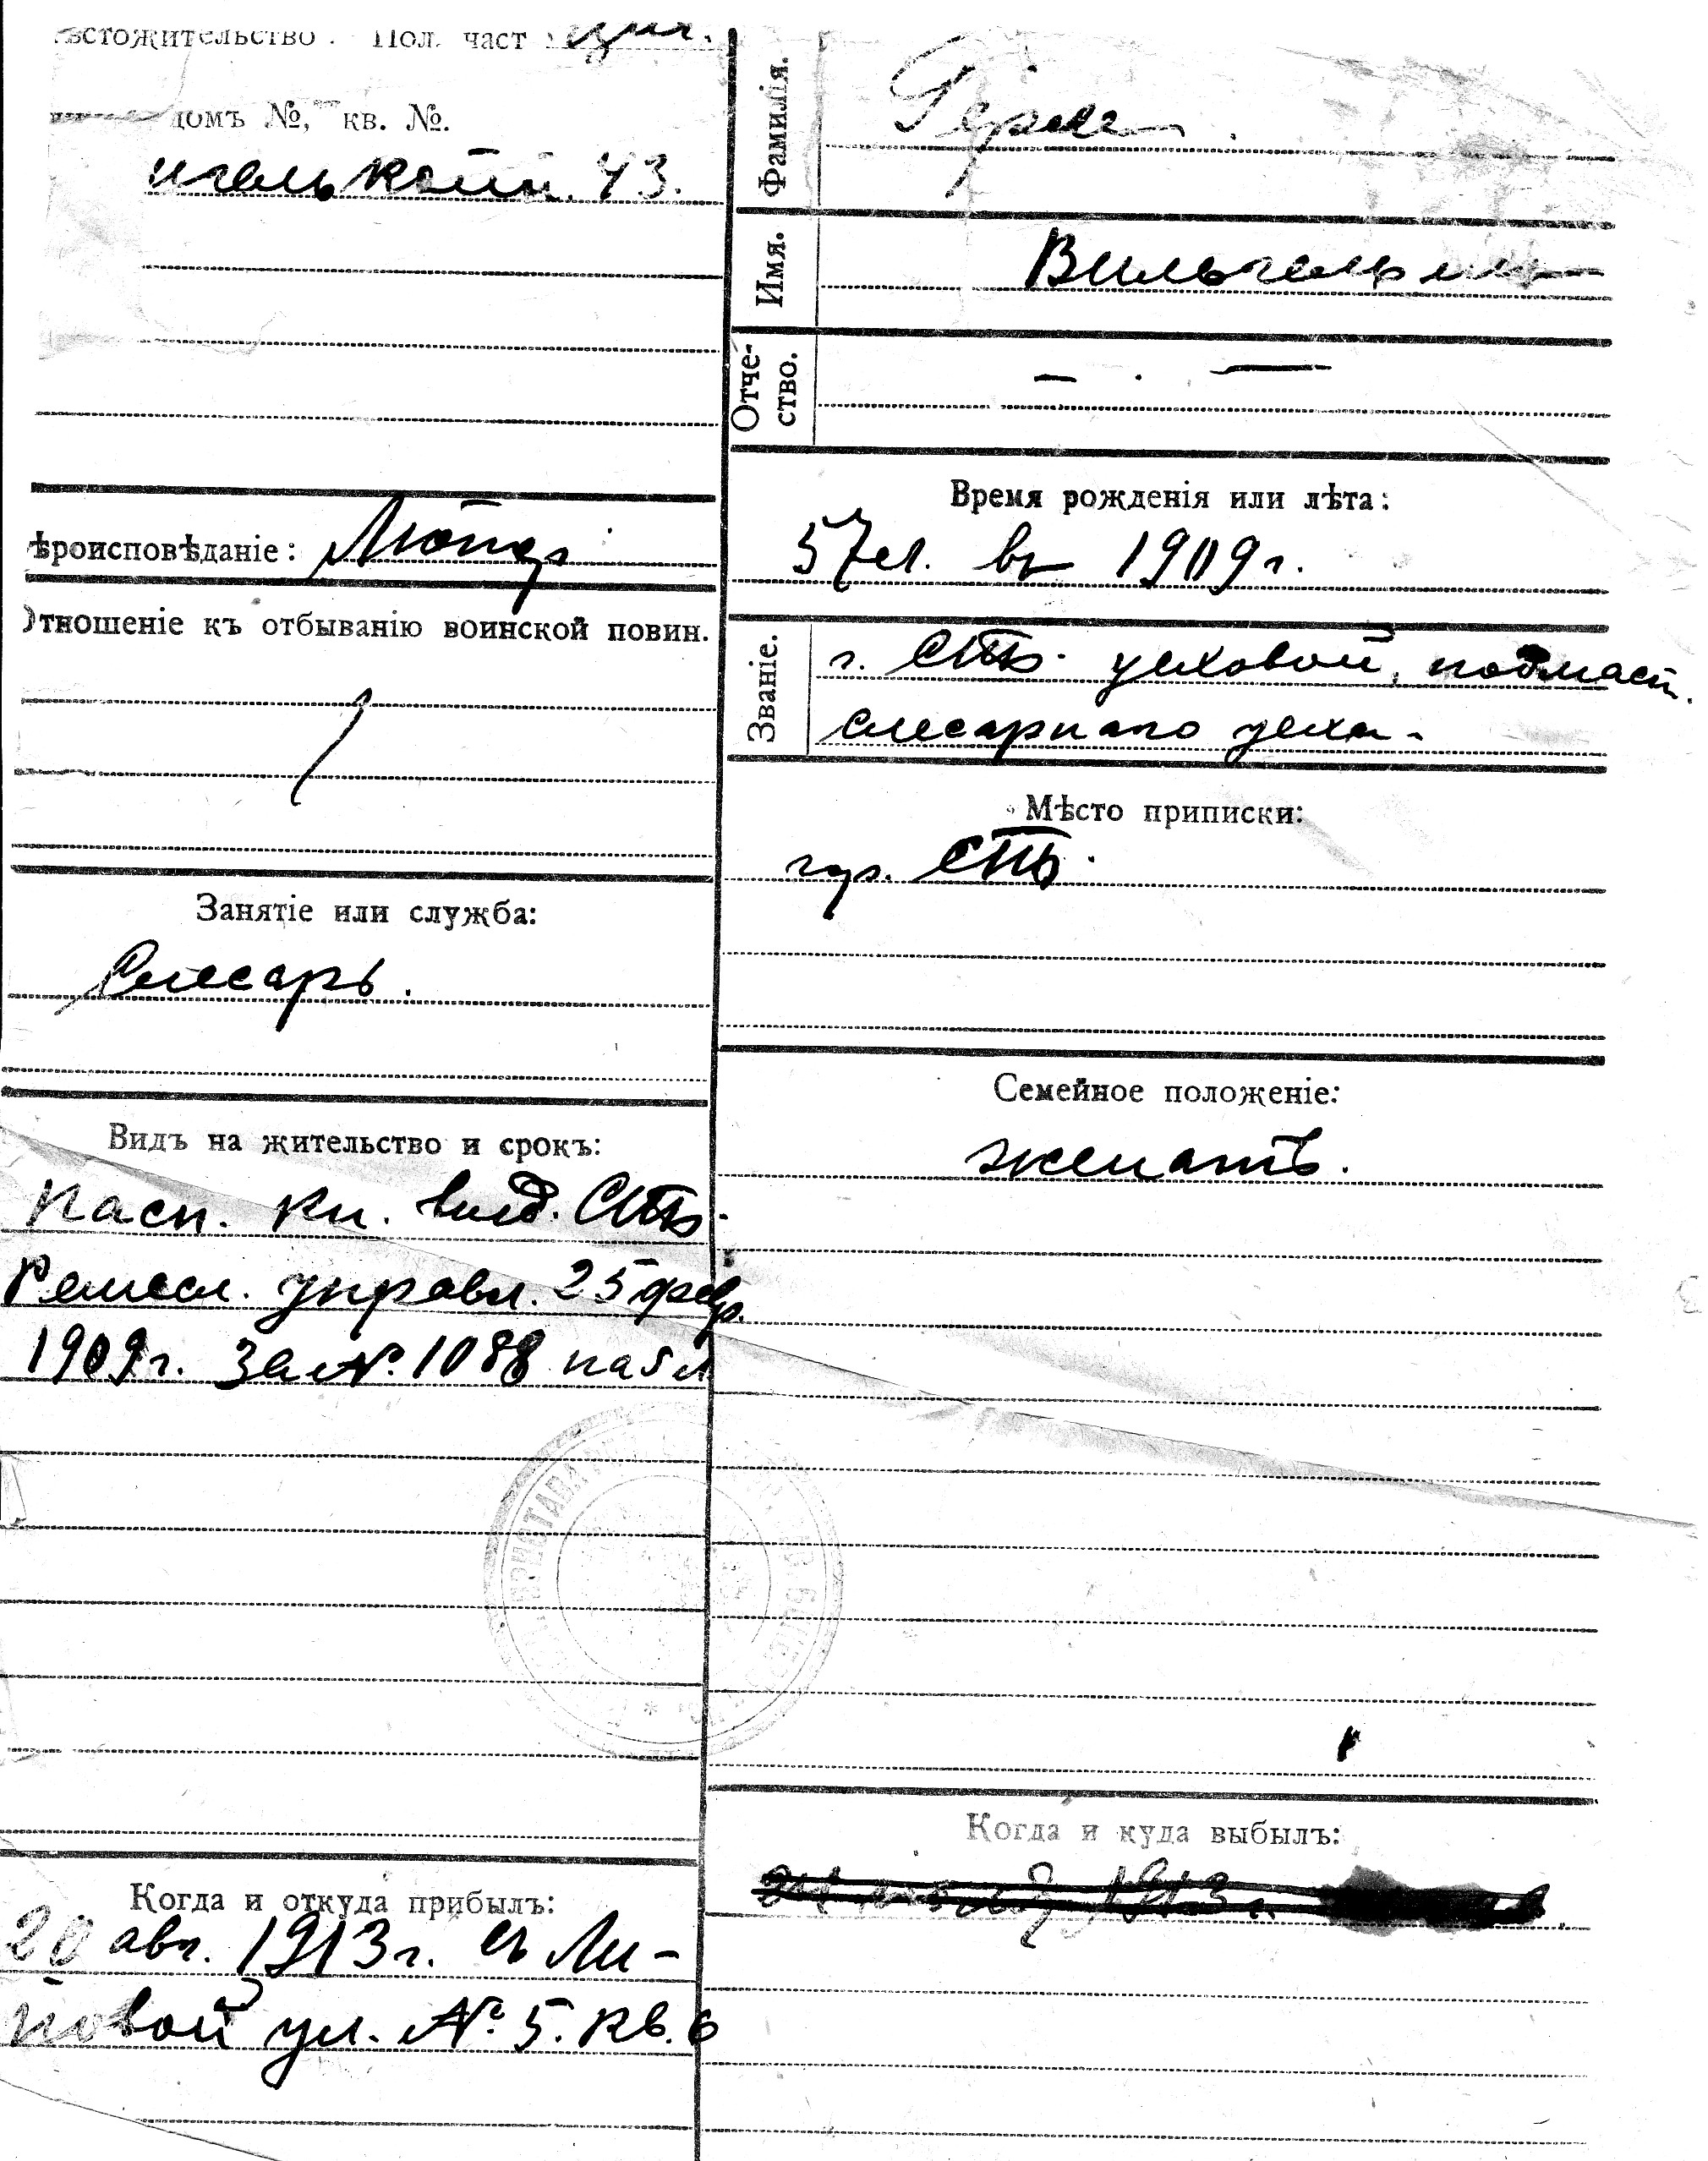 Пол. част
домъ №, кв. №.
43.
Вѣроисповѣданіе: Лютер
Отношеніе къ отбыванію воинской повин.
Занятіе или служба:
Слесарь.
Видъ на жительство и срокъ:
Пасп. кн. выд. СПБ.
Ремесл. управл. 25 февр.
1909 г. за № 1088 на 5 л
Когда и откуда прибылъ:
20 авг. 1913 г. съ Ли-
повой ул. № 5. кв. 6
Фамилія.
Имя. Вильгельмъ
Отче-
ство. — . —
Время рожденія или лѣта:
57 л. въ 1909 г.
Званіе. г. СПБ. цеховой, подмаст.
слесарнаго цеха.
Мѣсто приписки:
гор. СПБ.
Семейное положеніе:
женатъ.
Когда и куда выбылъ:
1913 г.